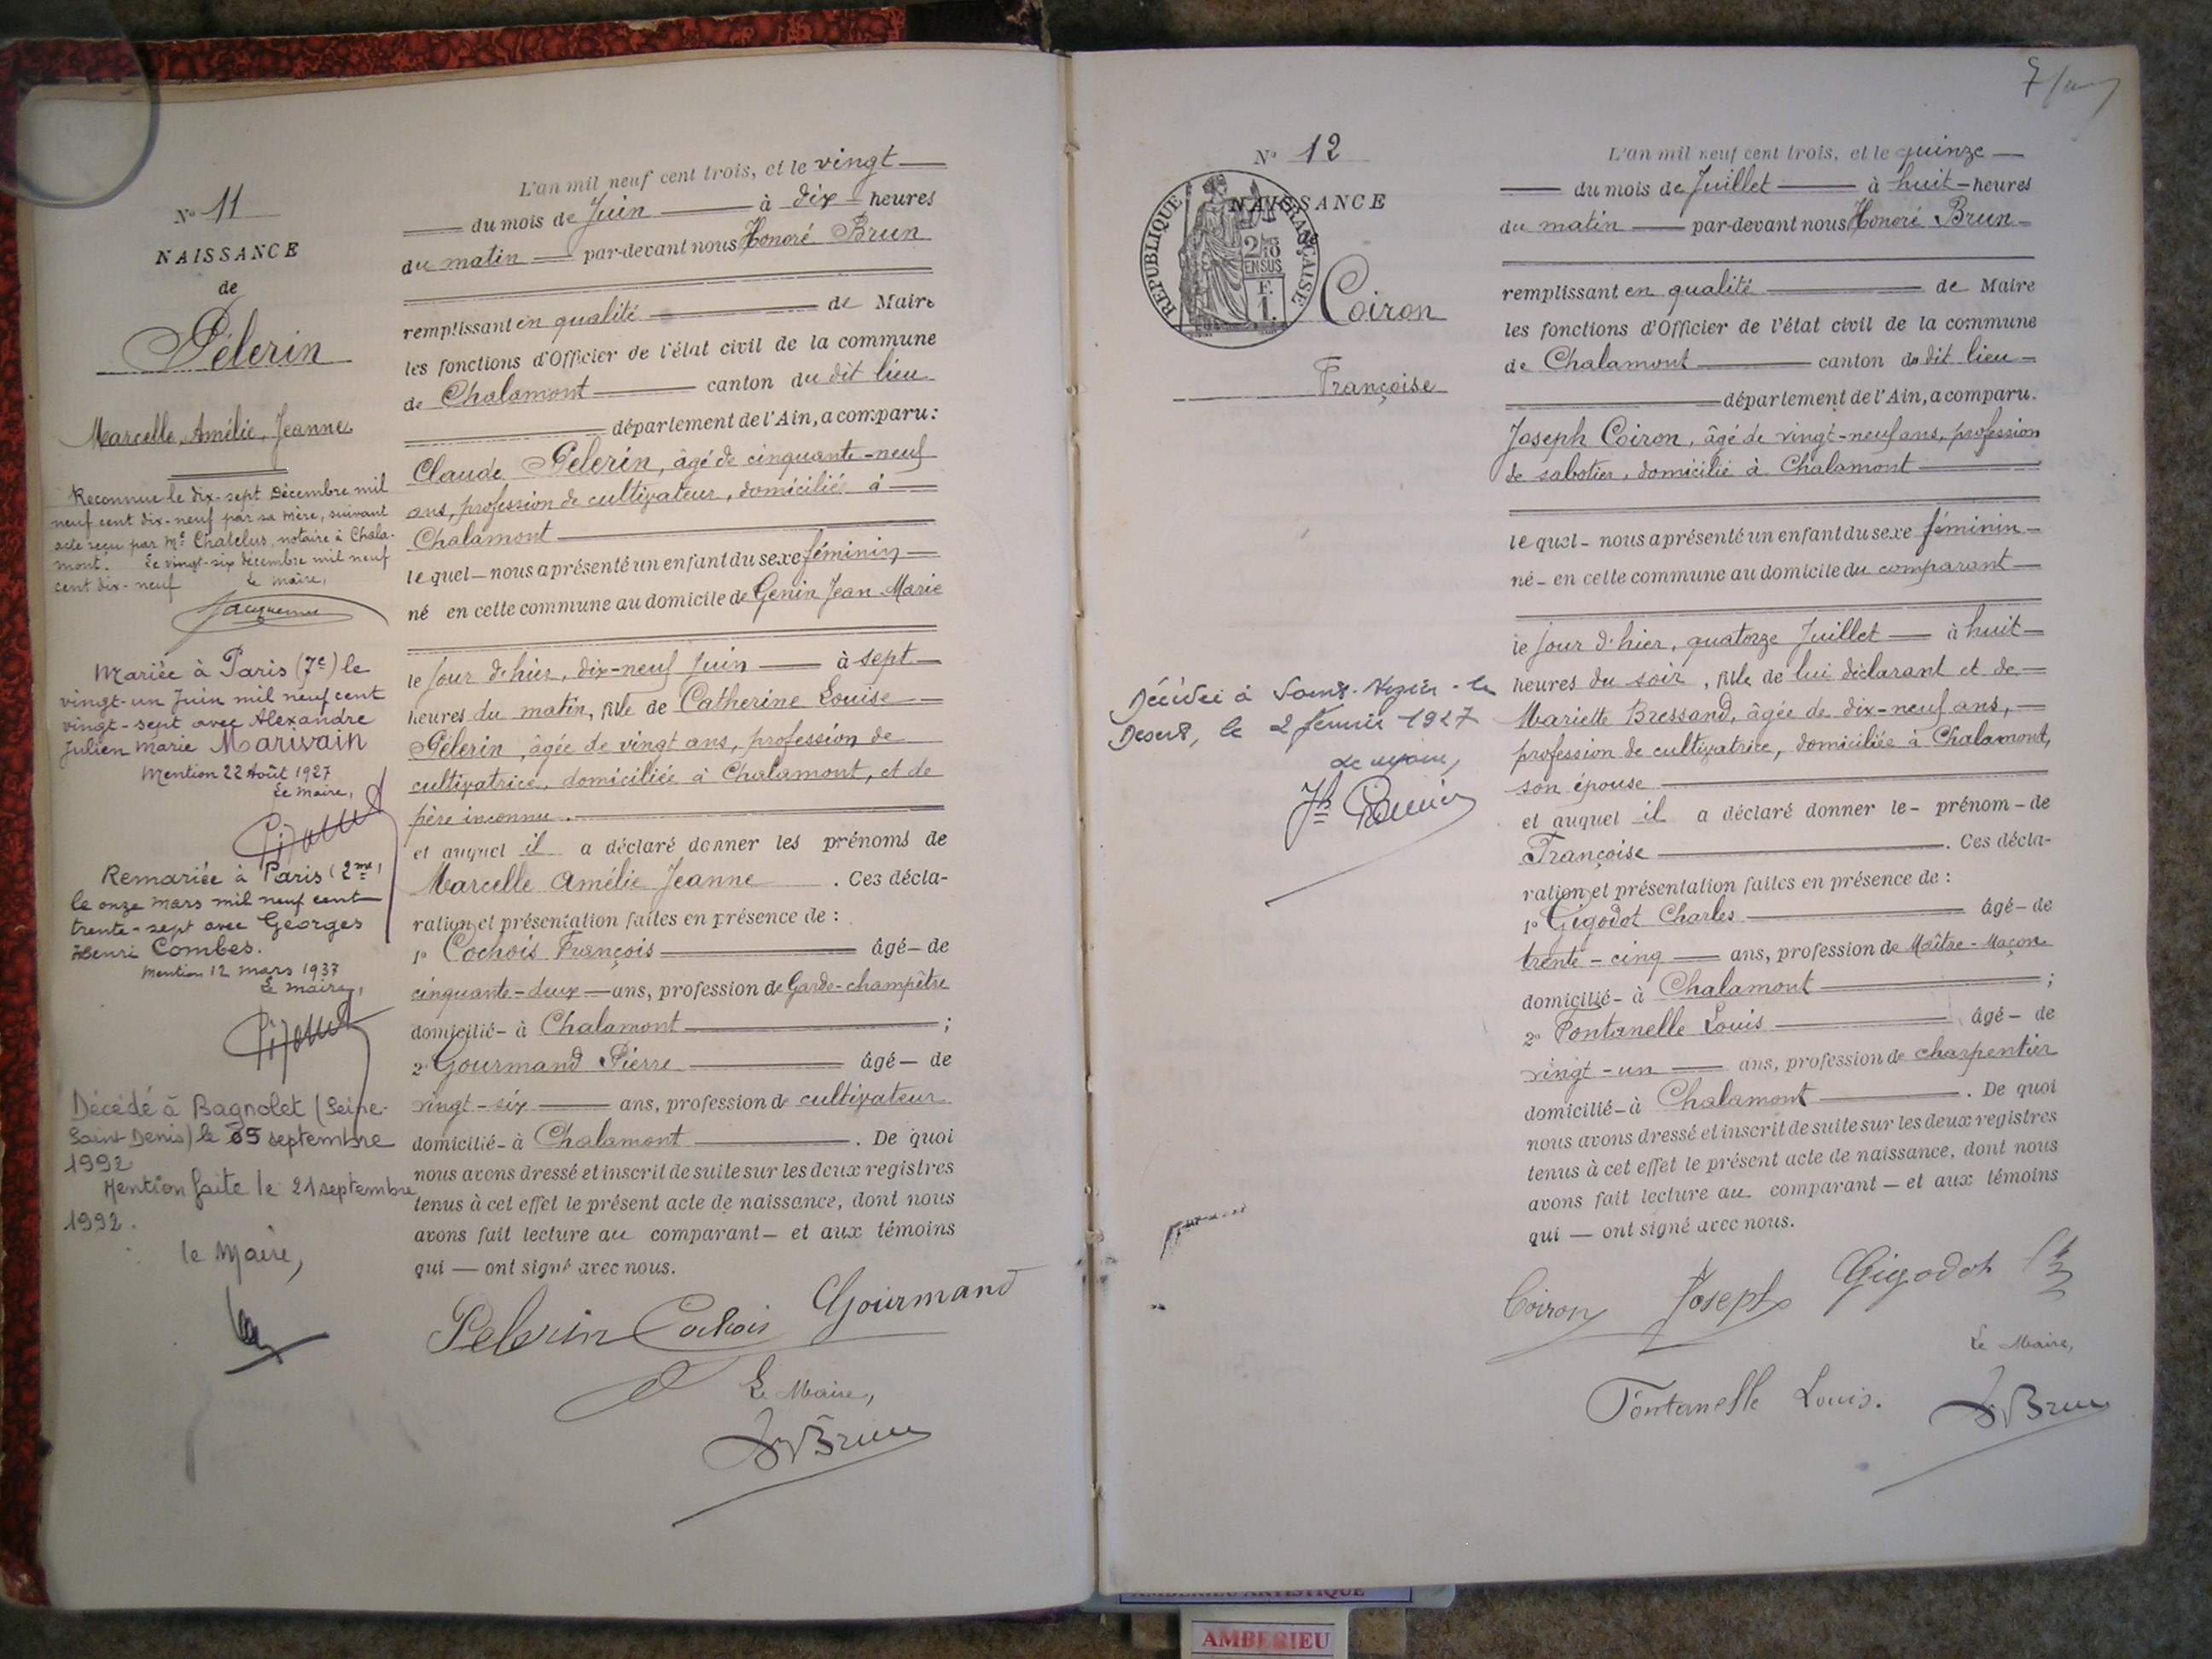 N° 11
NAISSANCE
de
Pélerin
Marcelle, Amélie, Jeanne
Reconnue le dix-sept Décembre mil
neuf cent dix-neuf par sa mère, suivant
acte reçu par Me Chatelus, notaire à Chala-
mont. Le vingt-six décembre mil neuf
cent dix-neuf Le maire,
Mariée à Paris (7e) le
vingt-un Juin mil neuf cent
vingt-sept avec Alexandre
Julien Marie Marivain
Mention 22 Août 1927
Le Maire,
Remariée à Paris (2me)
le onze mars mil neuf cent
trente-sept avec Georges
Henri Combes.
Mention 12 mars 1937
Le Maire,
Décédé à Bagnolet (Seine-
Saint Denis) le 05 septembre
1992
Mention faite le 21 septembre
1992.
le Maire,
L'an mil neuf cent trois, et le vingt
du mois de Juin à dix heures
du matin par-devant nous Honoré Brun
remplissant en qualité de Maire
les fonctions d'Officier de l'état civil de la commune
de Chalamont canton du dit lieu
département de l'Ain, a comparu:
Claude Pélerin, âgé de cinquante-neuf
ans, profession de cultivateur, domicilié à
Chalamont
lequel nous a présenté un enfant du sexe féminin
né en cette commune au domicile de Genin Jean-Marie
le jour d'hier, dix-neuf juin à sept
heures du matin, fille de Catherine Louise
Pélerin, âgée de vingt ans, profession de
cultivatrice, domiciliée à Chalamont, et de
père inconnu.
et auquel il a déclaré donner les prénoms de
Marcelle Amélie Jeanne. Ces décla-
ration et présentation faites en présence de :
1° Cochois François âgé de
cinquante-deux ans, profession de Garde-champêtre
domicilié à Chalamont ;
2° Gourmand Pierre âgé de
vingt-six ans, profession de cultivateur
domicilié à Chalamont. De quoi
nous avons dressé et inscrit de suite sur les deux registres
tenus à cet effet le présent acte de naissance, dont nous
avons fait lecture au comparant et aux témoins
qui ont signé avec nous.
Pelerin Cochois Gourmand
Le Maire,
Brun
N° 12
NAISSANCE
de
REPUBLIQUE FRANÇAISE
2/10
EN SUS
F.
1.
Coiron
Françoise
Décédée à le
Desert, le 2 février 1927
Le maire,
L'an mil neuf cent trois, et le quinze
du mois de Juillet à huit heures
du matin par-devant nous Honoré Brun
remplissant en qualité de Maire
les fonctions d'Officier de l'état civil de la commune
de Chalamont canton du dit lieu
département de l'Ain, a comparu.
Joseph Coiron, âgé de vingt-neuf ans, profession
de sabotier, domicilié à Chalamont
lequel nous a présenté un enfant du sexe féminin
né en cette commune au domicile du comparant
le jour d'hier, quatorze Juillet à huit
heures du soir, fille de lui déclarant et de
Mariette Bressand, âgée de dix-neuf ans,
profession de cultivatrice, domiciliée à Chalamont,
son épouse
et auquel il a déclaré donner le prénom de
Françoise. Ces décla-
ration et présentation faites en présence de :
1° Gigodot Charles âgé de
trente-cinq ans, profession de Maître-Maçon
domicilié à Chalamont ;
2° Fontanelle Louis âgé de
vingt-un ans, profession de charpentier
domicilié à Chalamont. De quoi
nous avons dressé et inscrit de suite sur les deux registres
tenus à cet effet le présent acte de naissance, dont nous
avons fait lecture au comparant et aux témoins
qui ont signé avec nous.
Coiron Joseph Gigodot
Le Maire,
Fontanelle Louis. Brun
AMBERIEU ARTISTIQUE
AMBERIEU